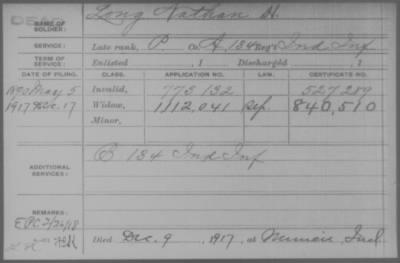 Dead
NAME OF SOLDIER: Long Nathan H.
SERVICE: Late rank, P. Co. A, 134 Reg't Ind Inf
TERM OF SERVICE: Enlisted , 1 Discharged , 1
DATE OF FILING. CLASS. APPLICATION NO. LAW. CERTIFICATE NO.
1890 May 5 Invalid, 775 132 527 289
1917 Dec. 17 Widow, 1112,041 Rep. 840,510
Minor,
ADDITIONAL SERVICES: C 134 Ind Inf
REMARKS:
Died Dec. 9 , 1917, at Muncie, Ind.